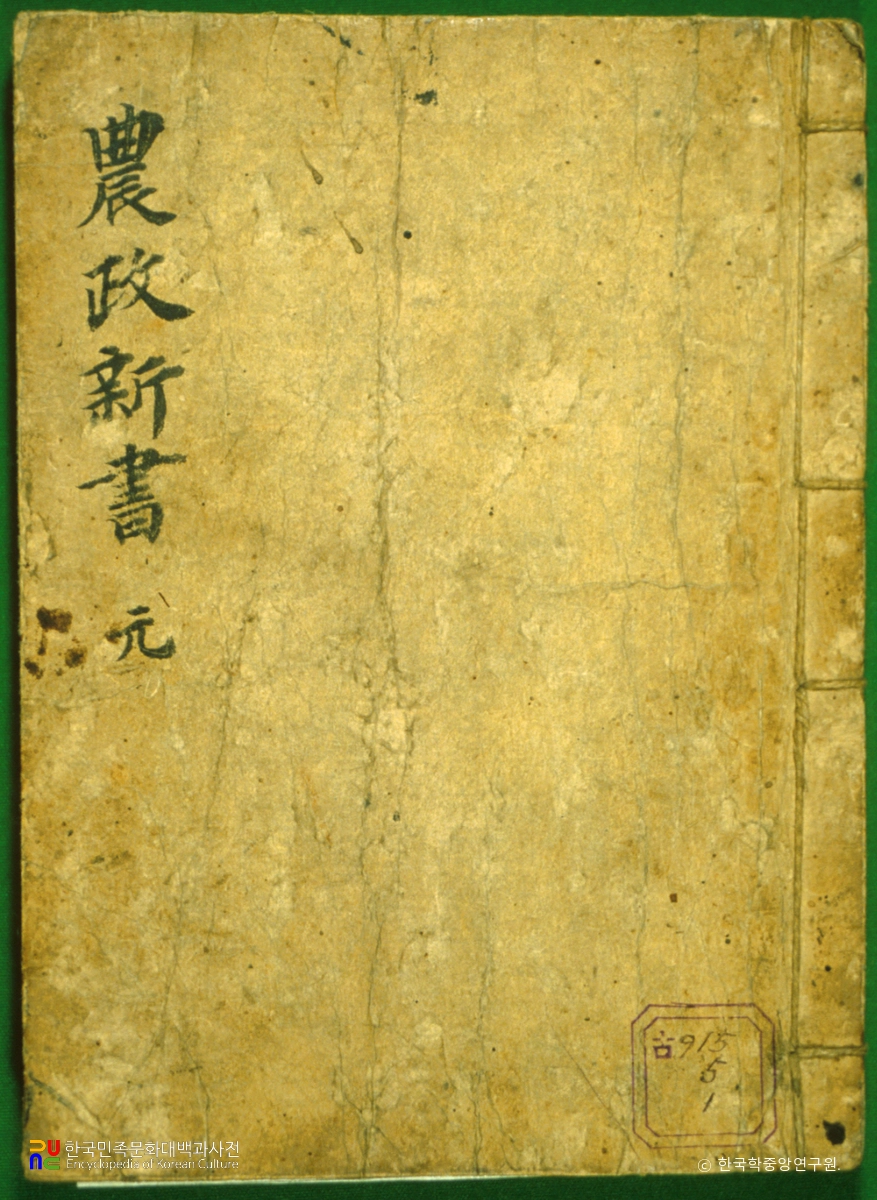 農政新書 元
古915
5
1
한국민족문화대백과사전
Encyclopedia of Korean Culture
© 한국학중앙연구원